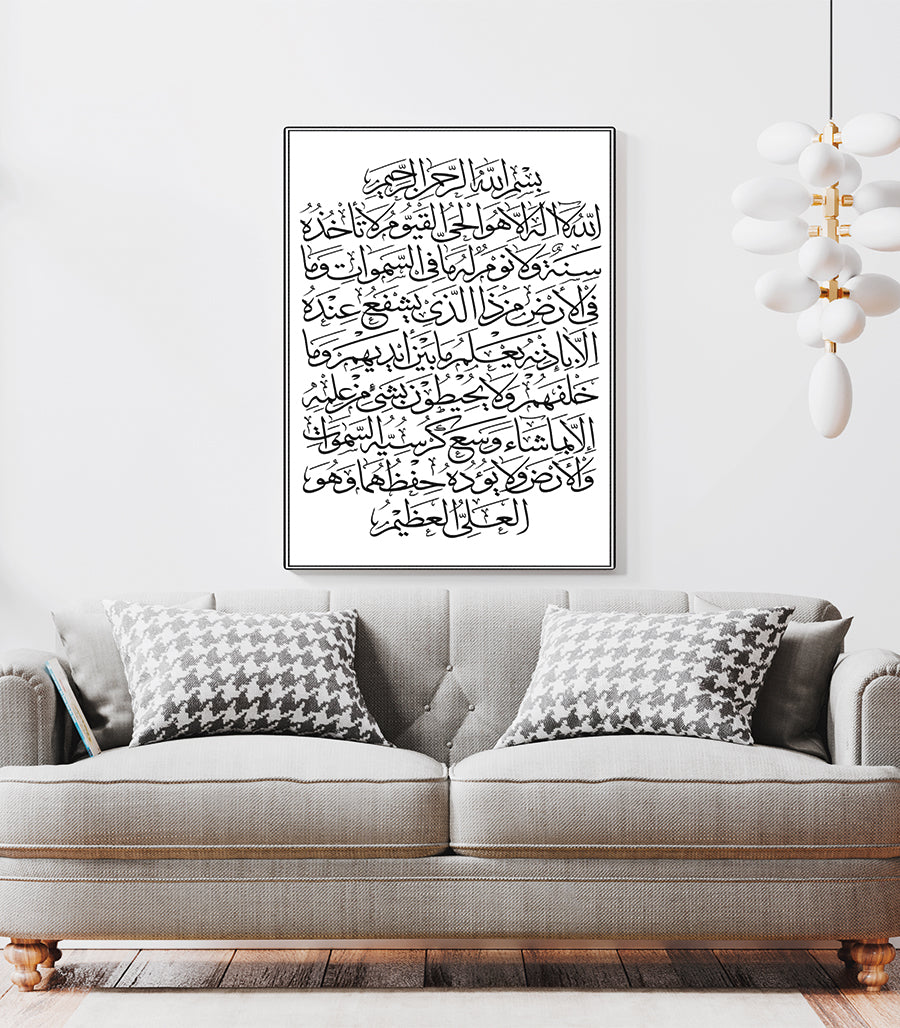 بِسْمِ اللّٰهِ الرَّحْمٰنِ الرَّحِيْمِ
اللّٰهُ لَا اِلٰهَ اِلَّا هُوَ الْحَىُّ الْقَيُّوْمُ لَا تَأْخُذُهُ
سِنَةٌ وَلَا نَوْمٌ لَهُ مَا فِى السَّمٰوَاتِ وَمَا
فِى الْأَرْضِ مَنْ ذَا الَّذِى يَشْفَعُ عِنْدَهُ
اِلَّا بِإِذْنِهِ يَعْلَمُ مَا بَيْنَ أَيْدِيْهِمْ وَمَا
خَلْفَهُمْ وَلَا يُحِيْطُوْنَ بِشَىْءٍ مِنْ عِلْمِهِ
اِلَّا بِمَا شَاءَ وَسِعَ كُرْسِيُّهُ السَّمٰوَاتِ
وَالْأَرْضَ وَلَا يَؤُدُهُ حِفْظُهُمَا وَهُوَ
الْعَلِىُّ الْعَظِيْمُ